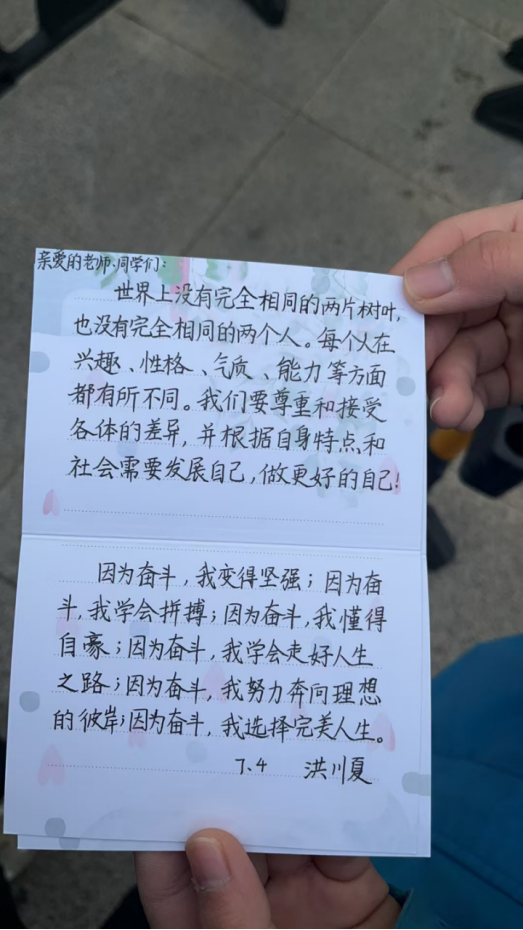 亲爱的老师、同学们：
世界上没有完全相同的两片树叶，
也没有完全相同的两个人。每个人在
兴趣、性格、气质、能力等方面
都有所不同。我们要尊重和接受
各体的差异，并根据自身特点和
社会需要发展自己，做更好的自己！
因为奋斗，我变得坚强；因为奋
斗，我学会拼搏；因为奋斗，我懂得
自豪；因为奋斗，我学会走好人生
之路；因为奋斗，我努力奔向理想
的彼岸；因为奋斗，我选择完美人生。
7.4 洪川夏